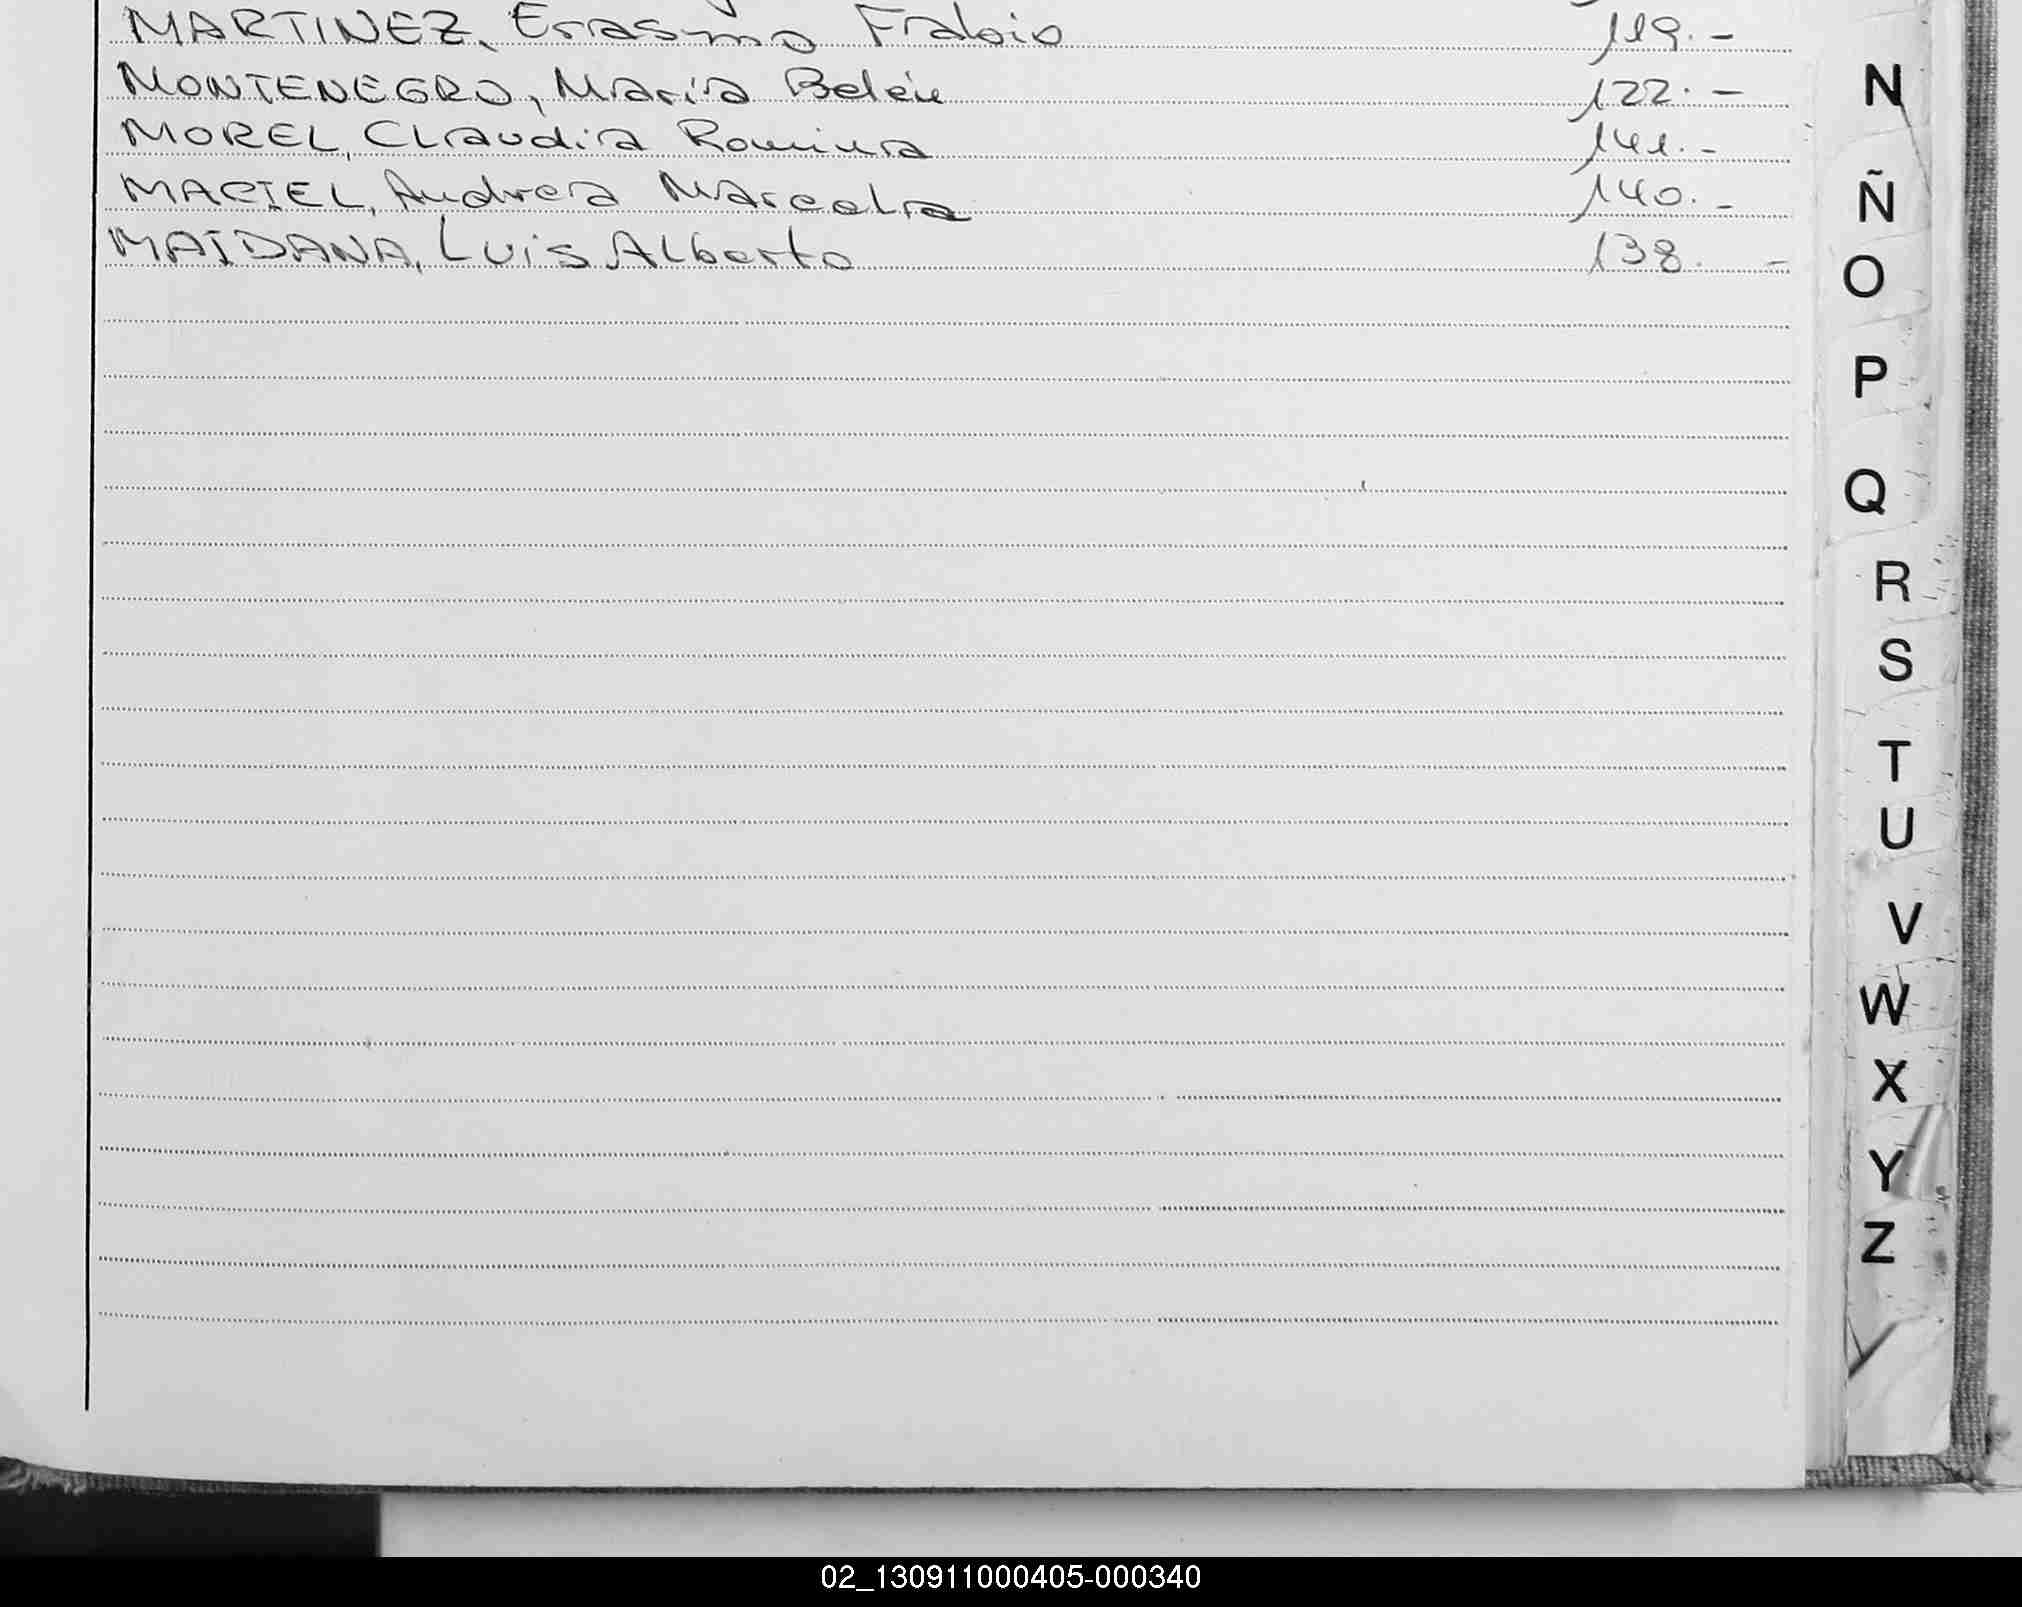 MARTINEZ, Erasmo Fabio 119.-
MONTENEGRO, María Belén 122.-
MOREL, Claudia Romina 141.-
MACIEL, Andrea Marcela 140.-
MAIDANA, Luis Alberto 138. -
N
Ñ
O
P
Q
R
S
T
U
V
W
X
Y
Z
02_130911000405-000340